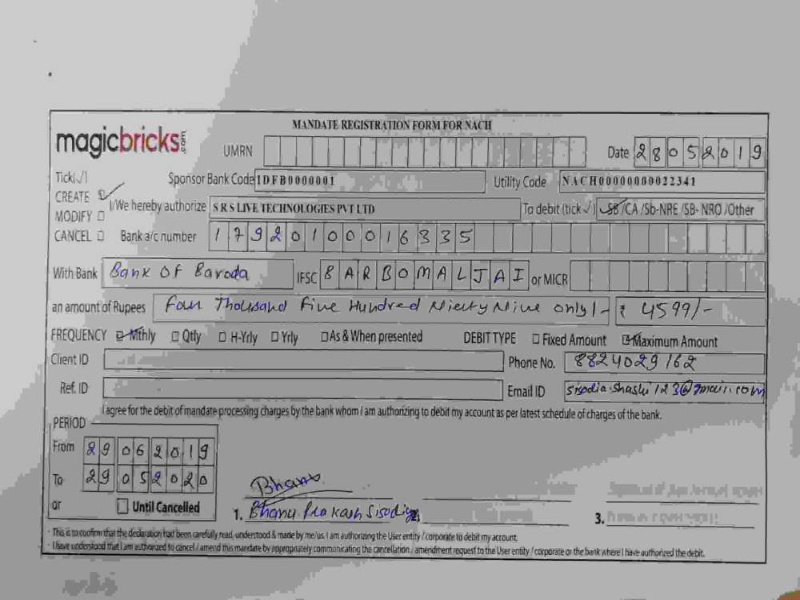 MANDATE REGISTRATION FORM FOR NACH
magicbricks.com
UMRN
Date 28052019
Tick(✓)
Sponsor Bank Code IDFB0000001 Utility Code NACH00000000022341
CREATE ✓
MODIFY
CANCEL
I/We hereby authorize S R S LIVE TECHNOLOGIES PVT LTD To debit (tick ✓) SB/CA/Sb-NRE/SB-NRO/Other
Bank a/c number 17920100016335
With Bank Bank Of Baroda IFSC BARB0MALJAI or MICR
an amount of Rupees Four Thousand Five Hundred Nienty Nine only/- ₹ 4599/-
FREQUENCY Mthly Qtly H-Yrly Yrly As & When presented DEBIT TYPE Fixed Amount Maximum Amount
Client ID Phone No. 8824029162
Ref. ID Email ID sisodia.shashi123@gmail.com
I agree for the debit of mandate processing charges by the bank whom I am authorizing to debit my account as per latest schedule of charges of the bank.
PERIOD
From 29062019
To 29052020
or Until Cancelled
Bhanu
1. Bhanu Prakash Sisodiya 2. 3.
- This is to confirm that the declaration had been carefully read, understood & made by me/us. I am authorizing the User entity / corporate to debit my account.
- I have understood that I am authorized to cancel / amend this mandate by appropriately communicating the cancellation / amendment request to the User entity / corporate or the bank where I have authorized the debit.